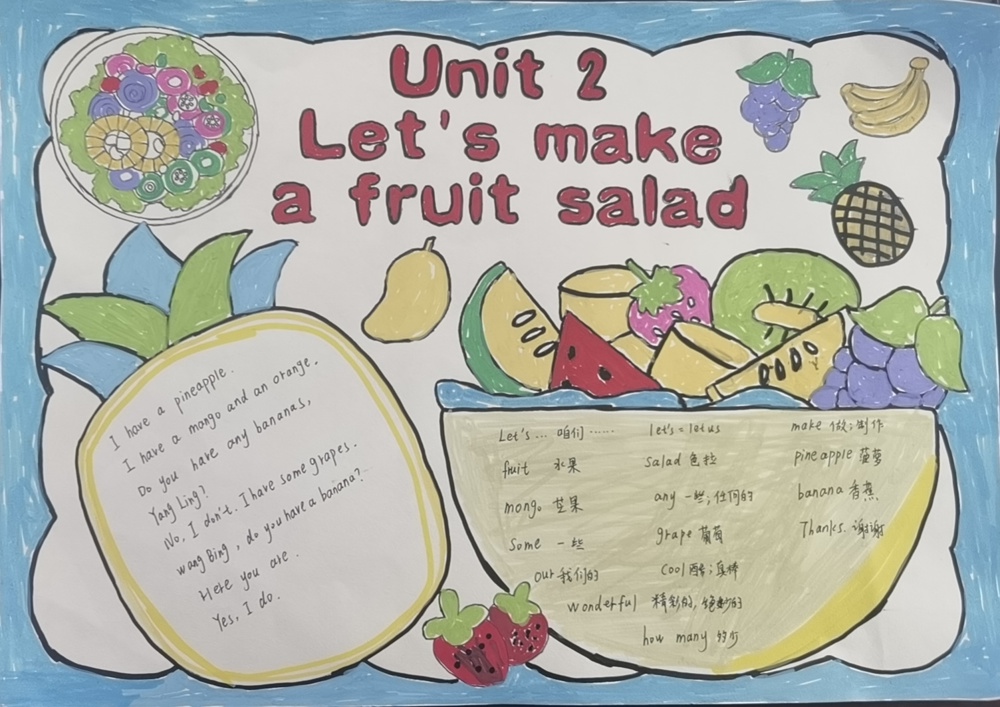 Unit 2
Let's make
a fruit salad
I have a pineapple.
I have a mango and an orange.
Do you have any bananas,
Yang Ling?
No, I don't. I have some grapes.
Wang Bing, do you have a banana?
Here you are.
Yes, I do.
Let's ... 咱们 ......
fruit 水果
mongo 芒果
some 一些
our 我们的
wonderful 精彩的,绝妙的
let's = let us
salad 色拉
any 一些;任何的
grape 葡萄
cool 酷;真棒
how many 多少
make 做;制作
pineapple 菠萝
banana 香蕉
Thanks. 谢谢